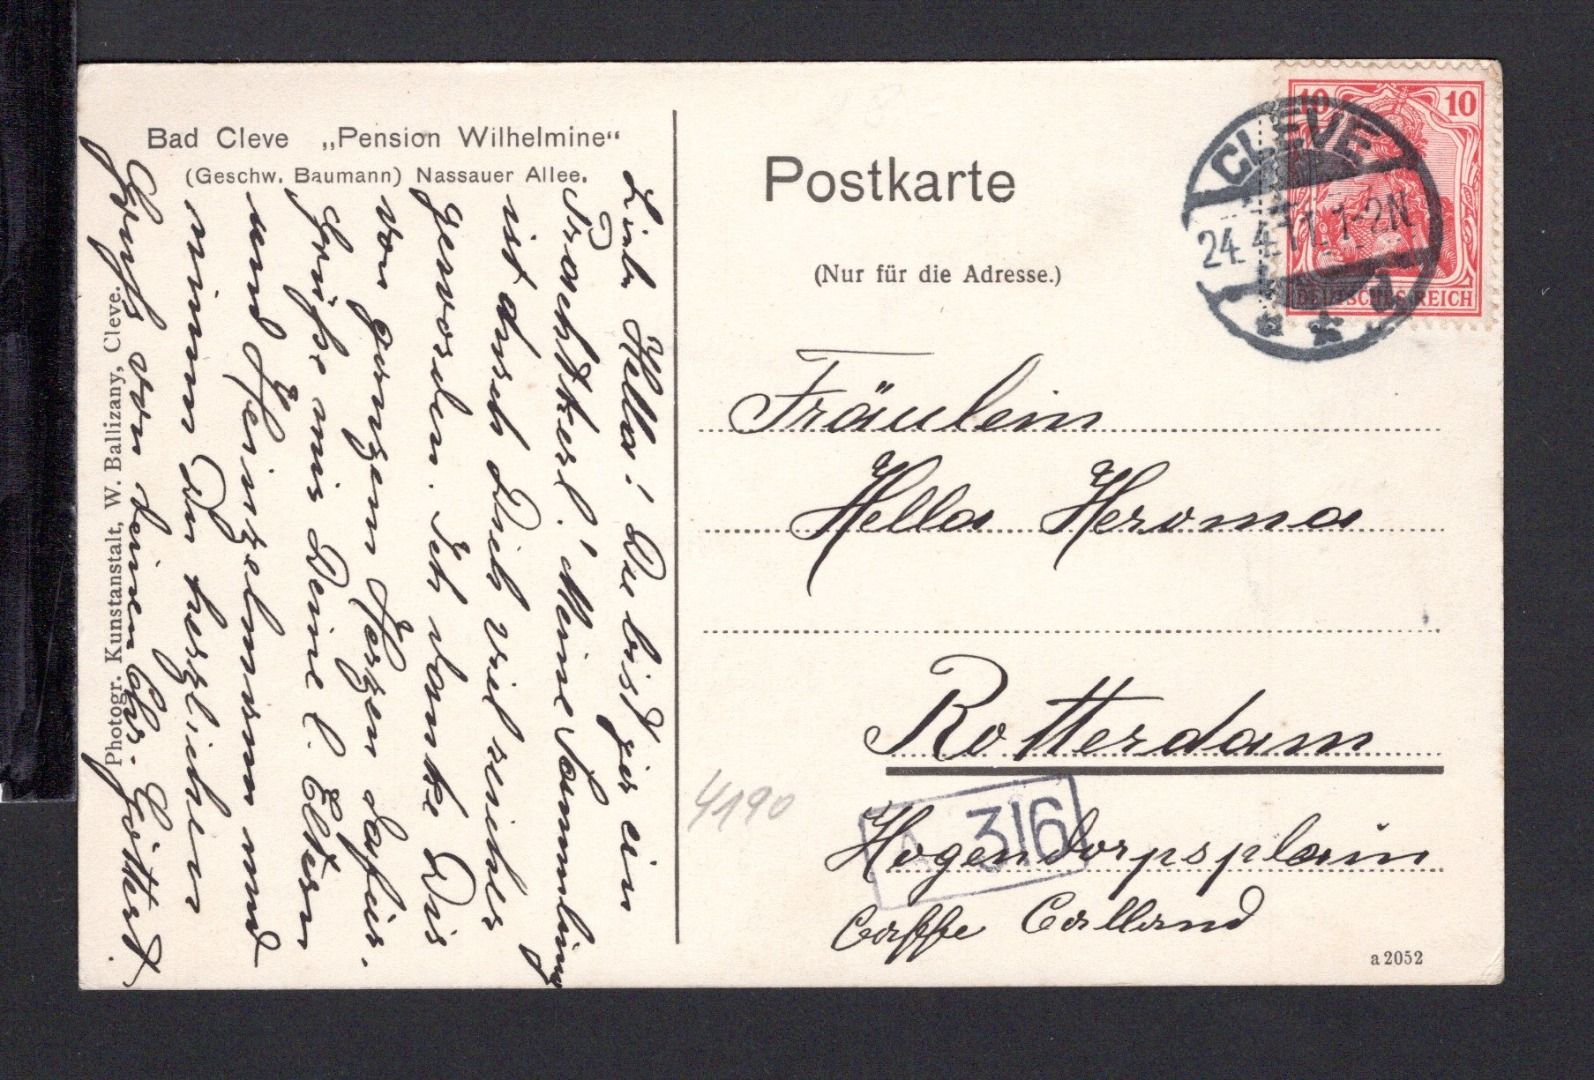 Bad Cleve „Pension Wilhelmine“
(Geschw. Baumann) Nassauer Allee.
Liebe Hella! Du bist ja ein
Prachtkerl! Meine Sammlung
ist durch Dich viel reicher
geworden. Ich danke Dir
von ganzem Herzen dafür.
Grüße mir Deine l. Eltern
und Heinzelmann und
nimm Du herzlichen
Gruß von deinem Chr. Göttert.
Photogr. Kunstanstalt, W. Ballizany, Cleve.
Postkarte
(Nur für die Adresse.)
10 10
DEUTSCHES REICH
CLEVE
24.4.11.1-2N
Fräulein
Hella Heroma
Rotterdam
4190
A 316
Hogendorpsplein
Caffe Calland
a 2052